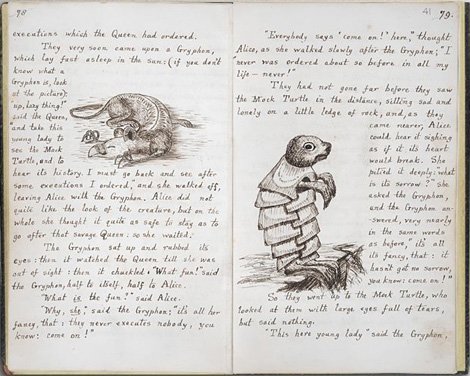 78
executions which the Queen had ordered.
They very soon came upon a Gryphon,
which lay fast asleep in the sun: (if you don't
know what a
Gryphon is, look
at the picture):
"up, lazy thing!"
said the Queen,
"and take this
young lady to
see the Mock
Turtle, and to
hear its history. I must go back and see after
some executions I ordered," and she walked off,
leaving Alice with the Gryphon. Alice did not
quite like the look of the creature, but on the
whole she thought it quite as safe to stay as to
go after that savage Queen: so she waited.
The Gryphon sat up and rubbed its
eyes: then it watched the Queen till she was
out of sight: then it chuckled. "What fun!" said
the Gryphon, half to itself, half to Alice.
"What is the fun?" said Alice.
"Why, she," said the Gryphon; "it's all her
fancy, that: they never executes nobody, you
know: come on!"
41
79.
"Everybody says 'come on!' here," thought
Alice, as she walked slowly after the Gryphon; "I
never was ordered about so before in all my
life — never!"
They had not gone far before they saw
the Mock Turtle in the distance, sitting sad and
lonely on a little ledge of rock, and, as they
came nearer, Alice
could hear it sighing
as if its heart
would break. She
pitied it deeply: "what
is its sorrow?" she
asked the Gryphon,
and the Gryphon an-
-swered, very nearly
in the same words
as before, "it's all
its fancy, that: it
hasn't got no sorrow,
you know: come on!"
So they went up to the Mock Turtle, who
looked at them with large eyes full of tears,
but said nothing.
"This here young lady" said the Gryphon,